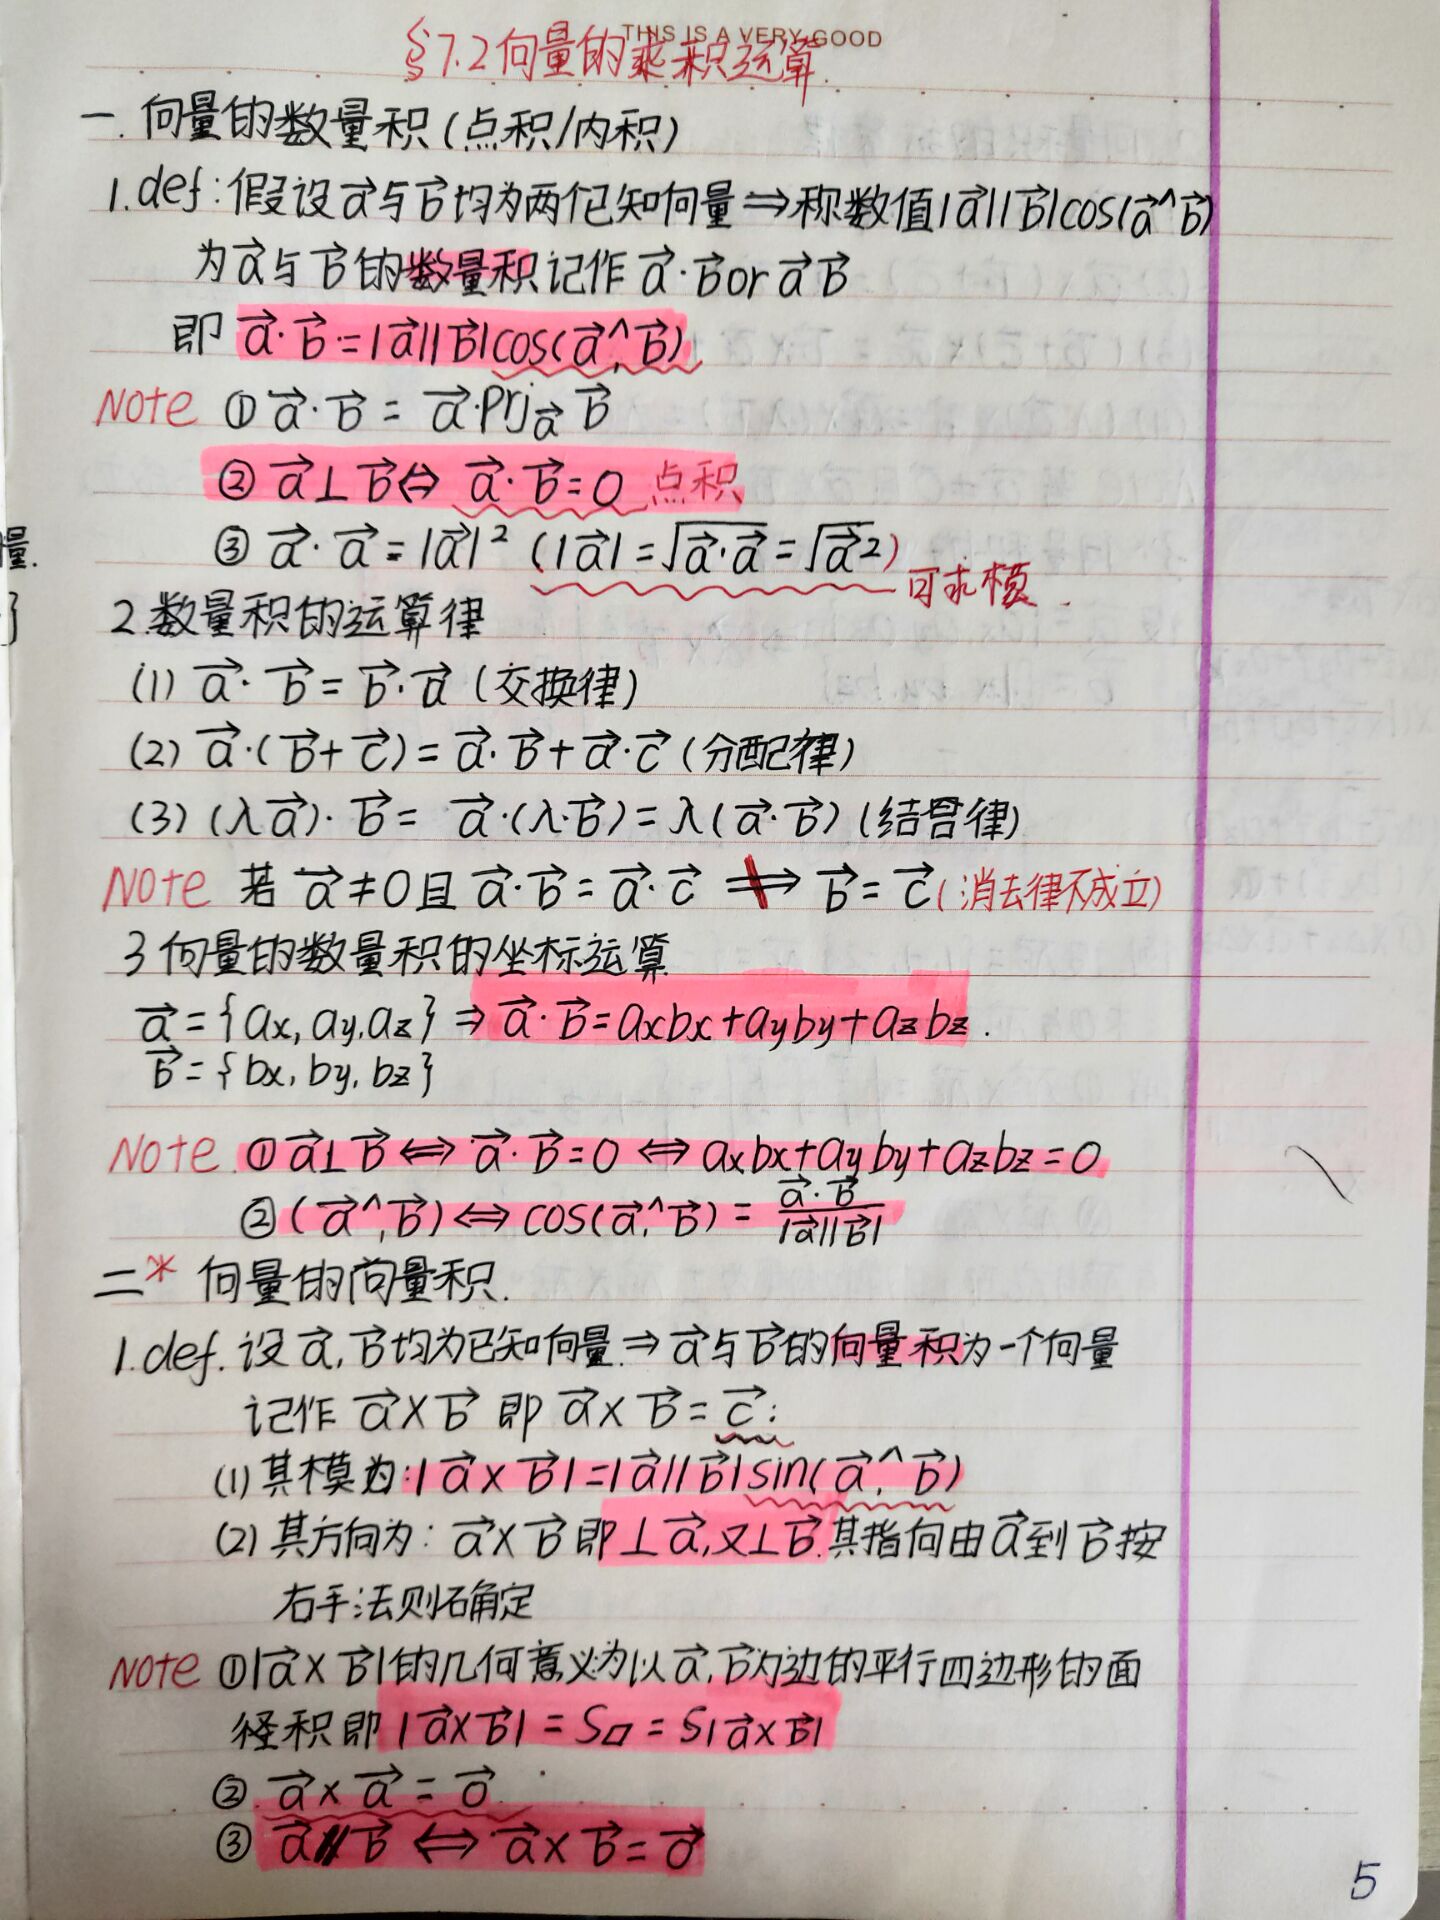 THIS IS A VERY GOOD
§7.2向量的乘积运算.
一.向量的数量积(点积/内积)
1.def:假设a⃗与b⃗均为两个已知向量⇒称数值|a⃗||b⃗|cos(a⃗^b⃗)
为a⃗与b⃗的数量积记作a⃗·b⃗ or a⃗b⃗
即 a⃗·b⃗=|a⃗||b⃗|cos(a⃗,^b⃗)
Note ①a⃗·b⃗ = a⃗·Prj a⃗ b⃗
②a⃗⊥b⃗⇔ a⃗·b⃗=0 点积
③a⃗·a⃗=|a⃗|² (|a⃗|=√a⃗·a⃗=√a⃗²) 可求模.
2.数量积的运算律
(1) a⃗·b⃗=b⃗·a⃗ (交换律)
(2) a⃗·(b⃗+c⃗)=a⃗·b⃗+a⃗·c⃗ (分配律)
(3) (λa⃗)·b⃗= a⃗·(λ·b⃗)=λ(a⃗·b⃗) (结合律)
Note 若 a⃗≠0且 a⃗·b⃗=a⃗·c⃗ ⇏ b⃗=c⃗(消去律不成立)
3向量的数量积的坐标运算
a⃗={ax,ay,az} ⇒ a⃗·b⃗=axbx+ayby+azbz.
b⃗={bx,by,bz}
Note ①a⃗⊥b⃗⇔a⃗·b⃗=0⇔axbx+ayby+azbz=0
②(a⃗^,b⃗)⇔cos(a⃗,^b⃗)= a⃗·b⃗/|a⃗||b⃗|
二* 向量的向量积.
1.def.设a⃗,b⃗均为已知向量.⇒a⃗与b⃗的向量积为一个向量
记作 a⃗×b⃗ 即 a⃗×b⃗=c⃗:
(1)其模为:|a⃗×b⃗|=|a⃗||b⃗|sin(a⃗,^b⃗)
(2)其方向为: a⃗×b⃗即⊥a⃗,又⊥b⃗.其指向由a⃗到b⃗按
右手法则确定
Note ①|a⃗×b⃗|的几何意义为以a⃗,b⃗为边的平行四边形的面
积即|a⃗×b⃗|=S▱=S|a⃗×b⃗|
② a⃗×a⃗=0⃗
③ a⃗∥b⃗⇔a⃗×b⃗=0⃗
5
量.
}